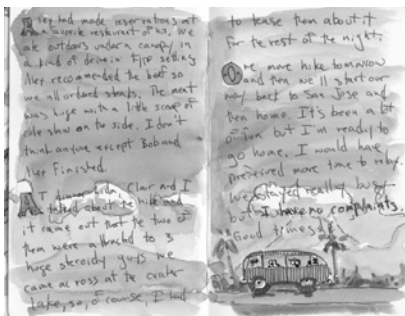 had made reservations at
a favorite restaurant of his. We
ate outdoors under a canopy in
a kind of drive in type setting
Alex recommended the beef so
we all ordered steaks. The meat
was huge with a little scoop of
cole slaw on the side. I don't
think anyone except Bob and
Alex finished.
AT dinner Clair and I
talked about the hike and
it came out that the two of
them were attracted to 3
huge steroidy guys we
came across at the crater
lake, so, of course, I had
to tease them about it
for the rest of the night.
One more hike tomorrow
and then we'll start our
way back to San Jose and
then home. It's been a lot
of fun but I'm ready to
go home. I would have
preferred more time to relax.
We stayed really busy
but I have no complaints.
Good times!